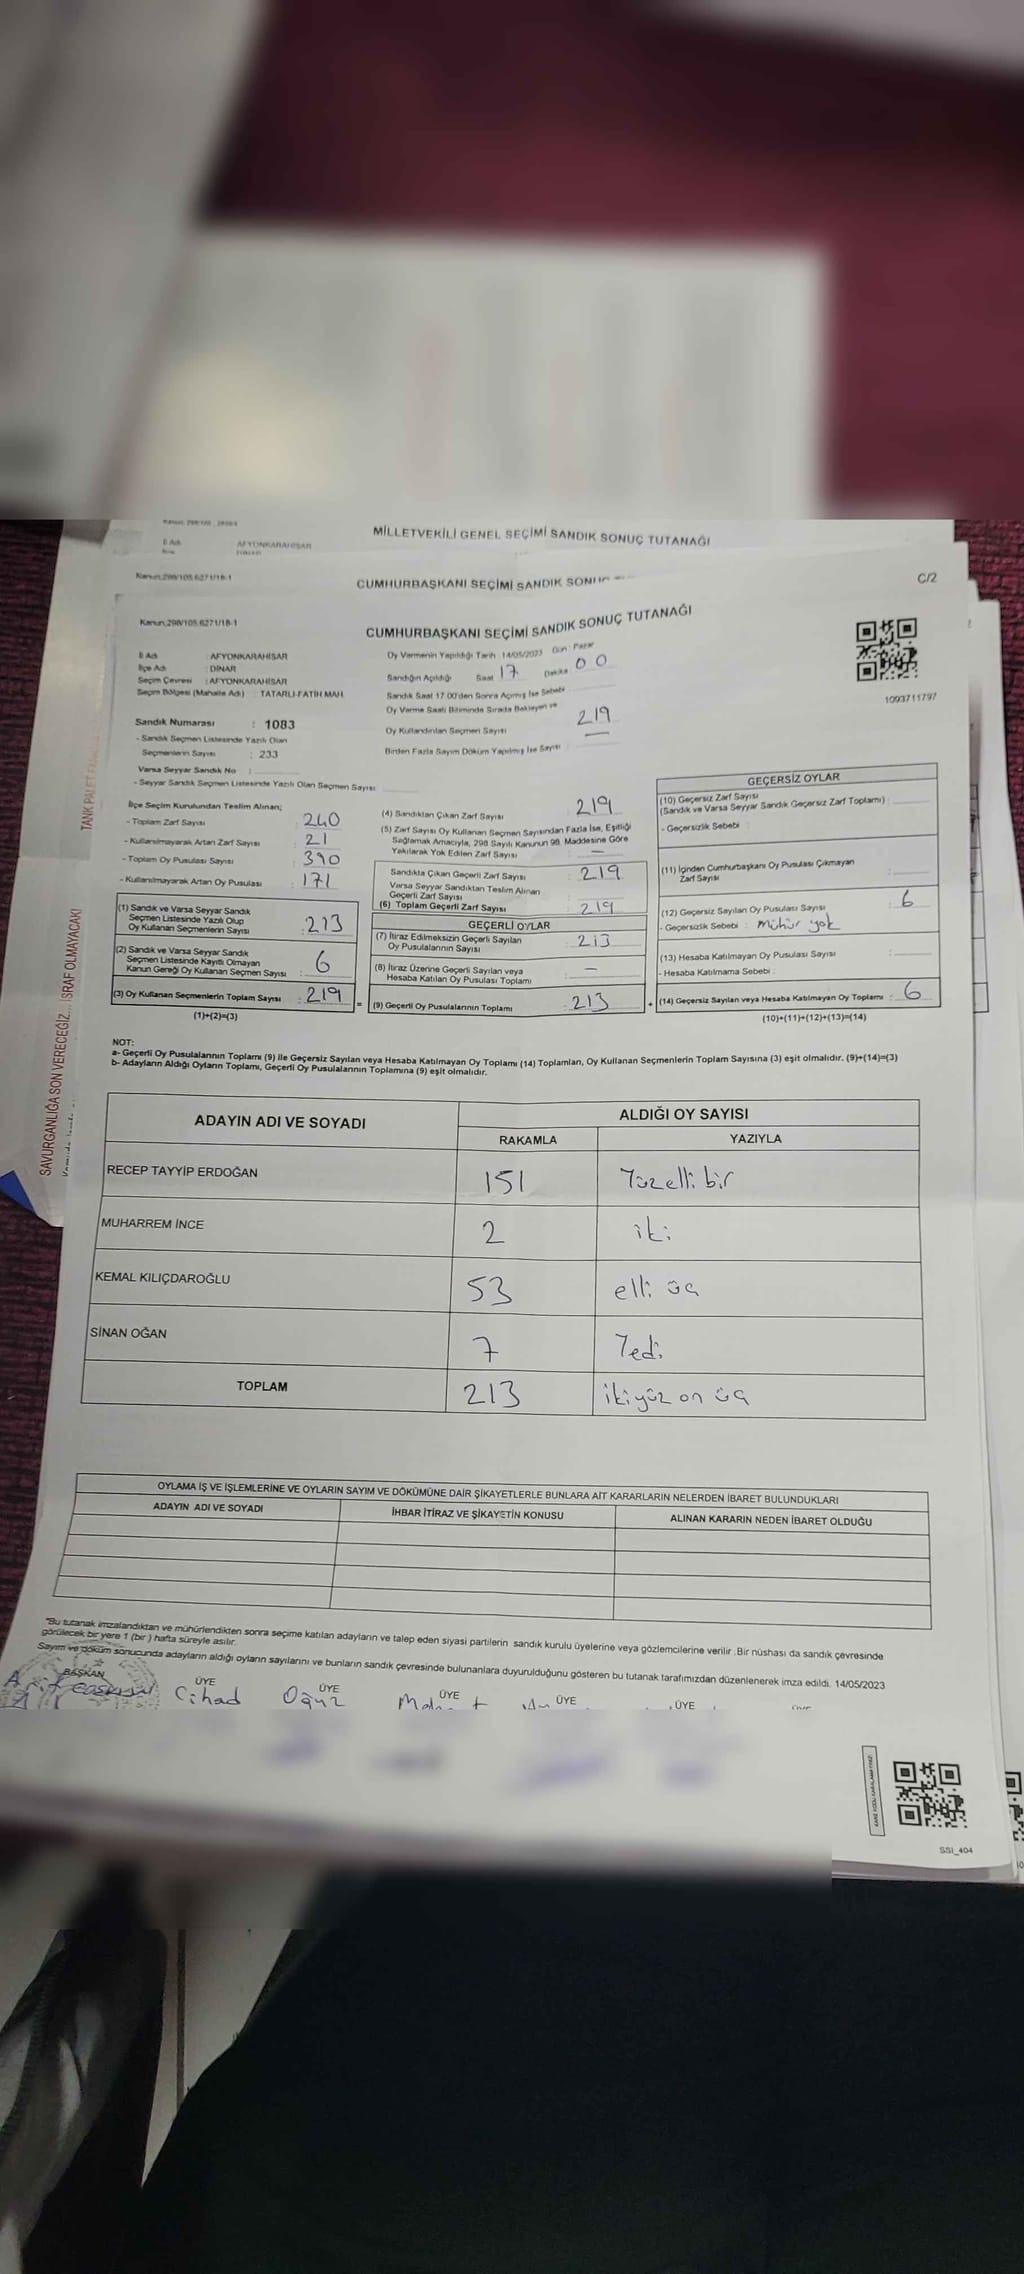 MİLLETVEKİLİ GENEL SEÇİMİ SANDIK SONUÇ TUTANAĞI
İl Adı AFYONKARAHİSAR
Kanun:298/105,6271/18-1
C/2
CUMHURBAŞKANI SEÇİMİ SANDIK
Kanun:298/105,6271/18-1
CUMHURBAŞKANI SEÇİMİ SANDIK SONUÇ TUTANAĞI
İl Adı : AFYONKARAHİSAR
İlçe Adı : DİNAR
Seçim Çevresi : AFYONKARAHİSAR
Seçim Bölgesi (Mahalle Adı) : TATARLI-FATİH MAH.
Sandık Numarası : 1083
- Sandık Seçmen Listesinde Yazılı Olan
Seçmenlerin Sayısı : 233
Varsa Seyyar Sandık No :
- Seyyar Sandık Seçmen Listesinde Yazılı Olan Seçmen Sayısı:
Oy Vermenin Yapıldığı Tarih : 14/05/2023 Gün : Pazar
Sandığın Açıldığı Saat 17 Dakika 00
Sandık Saat 17.00'den Sonra Açılmış İse Sebebi
Oy Verme Saati Bitiminde Sırada Bekleyen ve
Oy Kullandırılan Seçmen Sayısı 219
Birden Fazla Sayım Döküm Yapılmış İse Sayısı : —
1093711797
İlçe Seçim Kurulundan Teslim Alınan;
- Toplam Zarf Sayısı : 240
- Kullanılmayarak Artan Zarf Sayısı : 21
- Toplam Oy Pusulası Sayısı : 390
- Kullanılmayarak Artan Oy Pusulası : 171
(1) Sandık ve Varsa Seyyar Sandık
Seçmen Listesinde Yazılı Olup
Oy Kullanan Seçmenlerin Sayısı : 213
(2) Sandık ve Varsa Seyyar Sandık
Seçmen Listesinde Kayıtlı Olmayan
Kanun Gereği Oy Kullanan Seçmen Sayısı : 6
(3) Oy Kullanan Seçmenlerin Toplam Sayısı : 219
(1)+(2)=(3)
(4) Sandıktan Çıkan Zarf Sayısı : 219
(5) Zarf Sayısı Oy Kullanan Seçmen Sayısından Fazla İse, Eşitliği
Sağlamak Amacıyla, 298 Sayılı Kanunun 98. Maddesine Göre
Yakılarak Yok Edilen Zarf Sayısı : —
Sandıkta Çıkan Geçerli Zarf Sayısı : 219
Varsa Seyyar Sandıktan Teslim Alınan
Geçerli Zarf Sayısı :
(6) Toplam Geçerli Zarf Sayısı : 219
GEÇERLİ OYLAR
(7) İtiraz Edilmeksizin Geçerli Sayılan
Oy Pusulalarının Sayısı : 213
(8) İtiraz Üzerine Geçerli Sayılan veya
Hesaba Katılan Oy Pusulası Toplamı : —
(9) Geçerli Oy Pusulalarının Toplamı : 213
GEÇERSİZ OYLAR
(10) Geçersiz Zarf Sayısı
(Sandık ve Varsa Seyyar Sandık Geçersiz Zarf Toplamı) :
- Geçersizlik Sebebi :
(11) İçinden Cumhurbaşkanı Oy Pusulası Çıkmayan
Zarf Sayısı :
(12) Geçersiz Sayılan Oy Pusulası Sayısı : 6
- Geçersizlik Sebebi : mühür yok
(13) Hesaba Katılmayan Oy Pusulası Sayısı :
- Hesaba Katılmama Sebebi :
(14) Geçersiz Sayılan veya Hesaba Katılmayan Oy Toplamı : 6
(10)+(11)+(12)+(13)=(14)
NOT:
a- Geçerli Oy Pusulalarının Toplamı (9) ile Geçersiz Sayılan veya Hesaba Katılmayan Oy Toplamı (14) Toplamları, Oy Kullanan Seçmenlerin Toplam Sayısına (3) eşit olmalıdır. (9)+(14)=(3)
b- Adayların Aldığı Oyların Toplamı, Geçerli Oy Pusulalarının Toplamına (9) eşit olmalıdır.
ADAYIN ADI VE SOYADI ALDIĞI OY SAYISI
RAKAMLA YAZIYLA
RECEP TAYYİP ERDOĞAN 151 Yüzelli bir
MUHARREM İNCE 2 iki
KEMAL KILIÇDAROĞLU 53 elli üç
SİNAN OĞAN 7 Yedi
TOPLAM 213 ikiyüz on üç
OYLAMA İŞ VE İŞLEMLERİNE VE OYLARIN SAYIM VE DÖKÜMÜNE DAİR ŞİKAYETLERLE BUNLARA AİT KARARLARIN NELERDEN İBARET BULUNDUKLARI
ADAYIN ADI VE SOYADI İHBAR İTİRAZ VE ŞİKAYETİN KONUSU ALINAN KARARIN NEDEN İBARET OLDUĞU
"Bu tutanak imzalandıktan ve mühürlendikten sonra seçime katılan adayların ve talep eden siyasi partilerin sandık kurulu üyelerine veya gözlemcilerine verilir. Bir nüshası da sandık çevresinde
görülecek bir yere 1 (bir) hafta süreyle asılır.
Sayım ve döküm sonucunda adayların aldığı oyların sayılarını ve bunların sandık çevresinde bulunanlara duyurulduğunu gösteren bu tutanak tarafımızdan düzenlenerek imza edildi. 14/05/2023
BAŞKAN ÜYE ÜYE ÜYE ÜYE ÜYE
Cihad Oğuz
SSI_404
TANK PALET
SAVURGANLIĞA SON VERECEĞİZ... İSRAF OLMAYACAK!